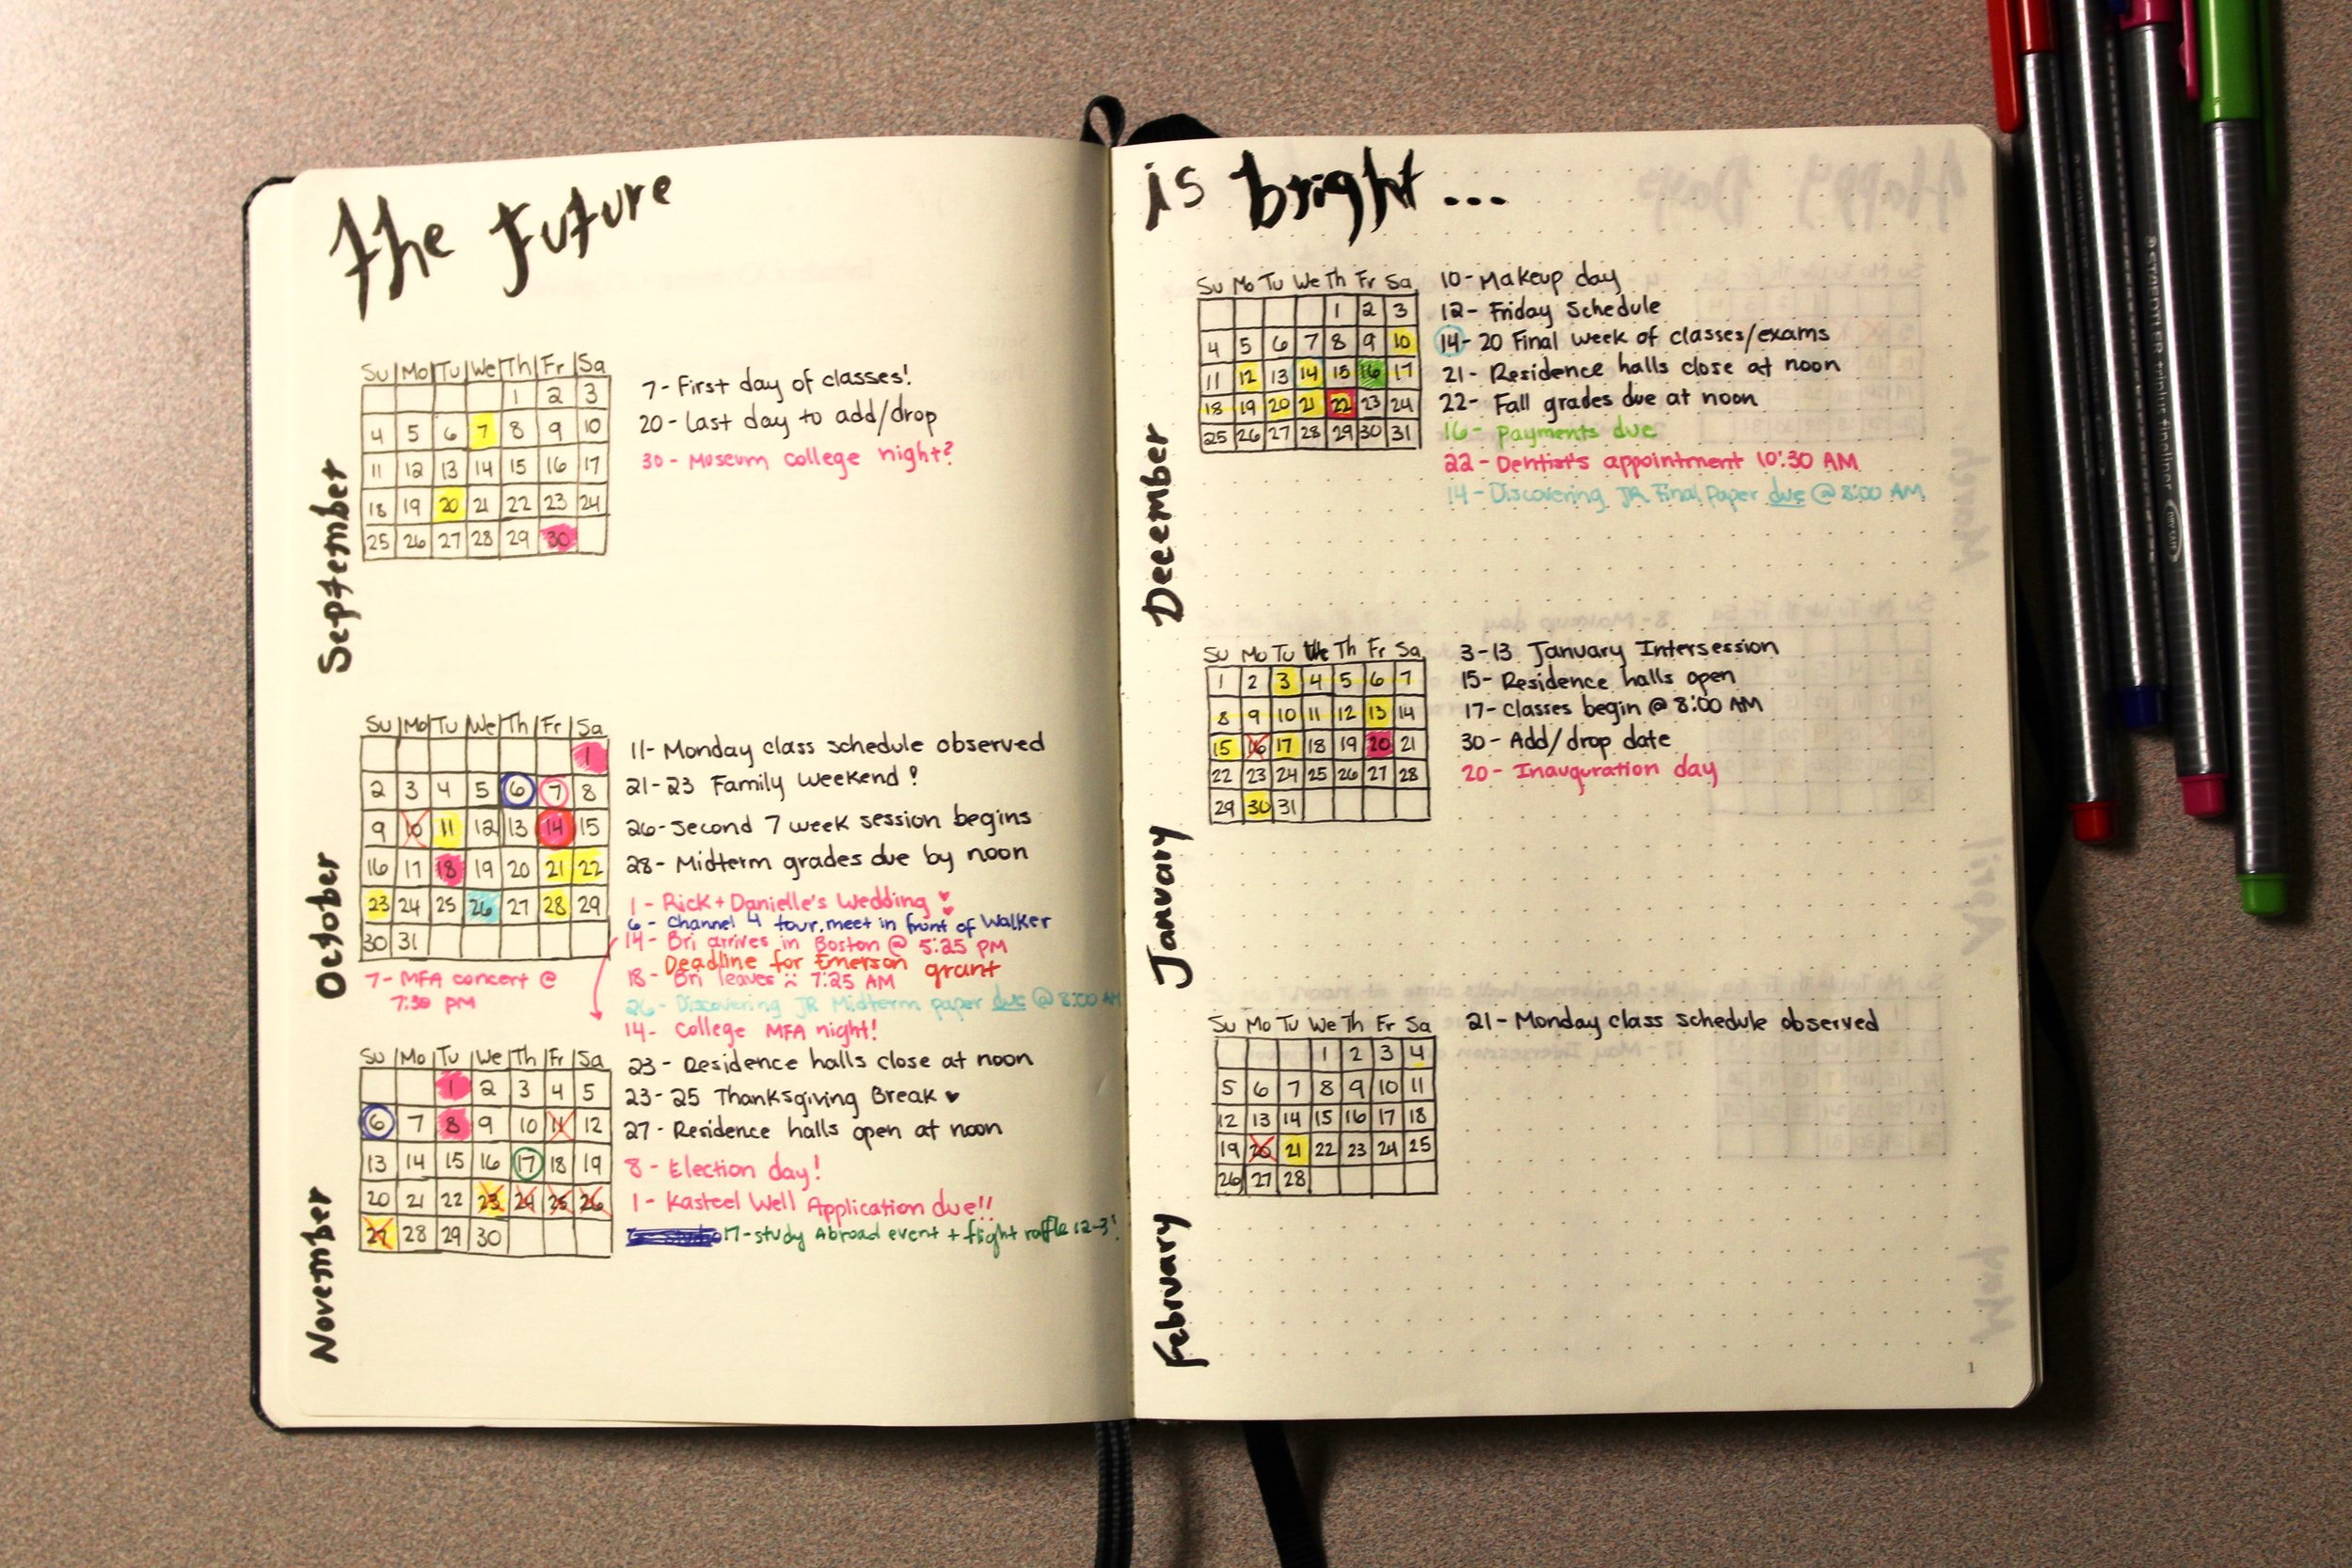 The Future
is bright...
September
Su Mo Tu We Th Fr Sa
1 2 3
4 5 6 7 8 9 10
11 12 13 14 15 16 17
18 19 20 21 22 23 24
25 26 27 28 29 30
7- First day of classes!
20- Last day to add/drop
30- Museum college night?
October
Su Mo Tu We Th Fr Sa
1
2 3 4 5 6 7 8
9 10 11 12 13 14 15
16 17 18 19 20 21 22
23 24 25 26 27 28 29
30 31
7- MFA concert @
7:30 PM
11- Monday class schedule observed
21-23 Family Weekend!
26- Second 7 week session begins
28- Midterm grades due by noon
1- Rick + Danielle's Wedding
6- Channel 4 tour, meet in front of Walker
14- Bri arrives in Boston @ 5:25 PM
Deadline for Emerson grant
18- Bri leaves 7:25 AM
26- Discovering JR Midterm paper due @ 8:00 AM
14- College MFA night!
November
Su Mo Tu We Th Fr Sa
1 2 3 4 5
6 7 8 9 10 11 12
13 14 15 16 17 18 19
20 21 22 23 24 25 26
27 28 29 30
23- Residence halls close at noon
23-25 Thanksgiving Break ♥
27- Residence halls open at noon
8- Election day!
1- Kasteel Well Application due!!
17-study Abroad event + flight raffle 12-3!
December
Su Mo Tu We Th Fr Sa
1 2 3
4 5 6 7 8 9 10
11 12 13 14 15 16 17
18 19 20 21 22 23 24
25 26 27 28 29 30 31
10- Makeup day
12- Friday Schedule
14-20 Final week of classes/exams
21- Residence halls close at noon
22- Fall grades due at noon
16- Payments due
22- Dentist's appointment 10:30 AM
14- Discovering JR Final Paper due @ 8:00 AM
January
Su Mo Tu We Th Fr Sa
1 2 3 4 5 6 7
8 9 10 11 12 13 14
15 16 17 18 19 20 21
22 23 24 25 26 27 28
29 30 31
3-13 January Intersession
15- Residence halls open
17- Classes begin @ 8:00 AM
30- Add/drop date
20- Inauguration day
February
Su Mo Tu We Th Fr Sa
1 2 3 4
5 6 7 8 9 10 11
12 13 14 15 16 17 18
19 20 21 22 23 24 25
26 27 28
21- Monday class schedule observed
1
STAEDTLER triplus fineliner